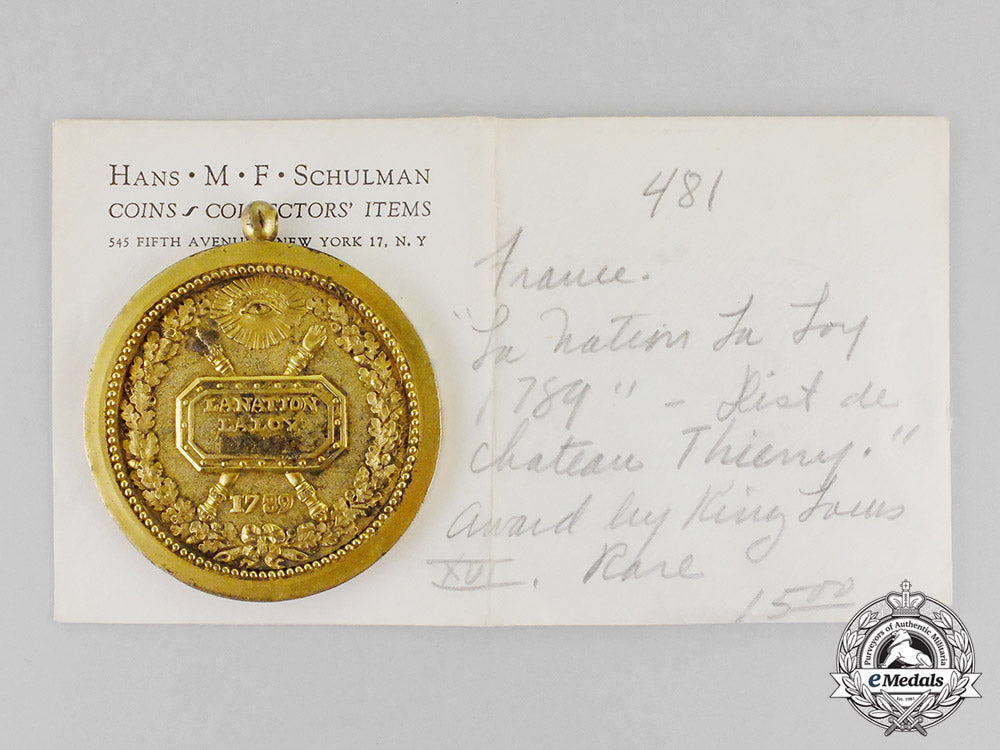 HANS • M • F • SCHULMAN
COINS COLLECTORS' ITEMS
545 FIFTH AVENUE NEW YORK 17, N. Y
LA NATION
LA LOY
1789
481
France.
"La Nation La Loy
1789" - Dist de
Chateau Thierry."
Award by King Louis
XVI. Rare
15.00
Purveyors of Authentic Militaria
eMedals